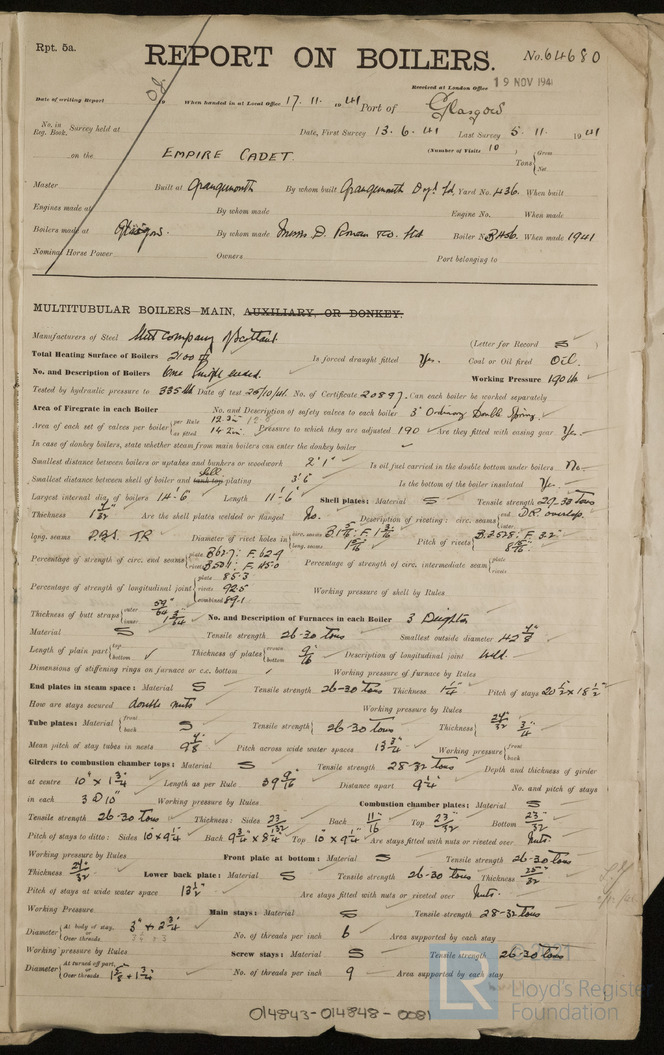 Rpt. 5a.
REPORT ON BOILERS.
No. 64680
Received at London Office 19 NOV 1941
Date of writing Report 19 When handed in at Local Office 17. 11. 1941 Port of Glasgow
No. in Reg. Book. Survey held at Date, First Survey 13. 6. 41 Last Survey 5. 11. 1941
on the EMPIRE CADET (Number of Visits 10) Tons { Gross Net
Master Built at Grangemouth By whom built Grangemouth Dyd Ld. Yard No. 436. When built
Engines made at By whom made Engine No. When made
Boilers made at Glasgow. By whom made Messrs D. Rowan & Co. Ltd Boiler No. B456. When made 1941
Nominal Horse Power Owners Port belonging to
MULTITUBULAR BOILERS MAIN, AUXILIARY, OR DONKEY.
Manufacturers of Steel Steel Company of Scotland. (Letter for Record S)
Total Heating Surface of Boilers 2100 Is forced draught fitted Yes. Coal or Oil fired Oil.
No. and Description of Boilers One Single ended. Working Pressure 190 lb
Tested by hydraulic pressure to 335 lb Date of test 20/10/41. No. of Certificate 20897. Can each boiler be worked separately
Area of Firegrate in each Boiler No. and Description of safety valves to each boiler 3" Ordinary Double Spring.
Area of each set of valves per boiler { per Rule as fitted 14.2 Pressure to which they are adjusted 190 Are they fitted with easing gear Yes
In case of donkey boilers, state whether steam from main boilers can enter the donkey boiler
Smallest distance between boilers or uptakes and bunkers or woodwork 2' 1" Is oil fuel carried in the double bottom under boilers No.
Smallest distance between shell of boiler and tank top shell plating 3' 6" Is the bottom of the boiler insulated Yes.
Largest internal dia. of boilers 14'-6" Length 11'-6" Shell plates: Material S Tensile strength 29-33 tons
Thickness Are the shell plates welded or flanged No. Description of riveting: circ. seams { end D.R. overlap. inter.
long. seams D.B.S. T.R. Diameter of rivet holes in { circ. seams long. seams Pitch of rivets {
Percentage of strength of circ. end seams { plate B 62.7: F. 62.9 rivets B 50.4: F. 45.0 Percentage of strength of circ. intermediate seam { plate rivets
Percentage of strength of longitudinal joint { plate 85.3 rivets 92.5 combined 89.1 Working pressure of shell by Rules
Thickness of butt straps { outer inner No. and Description of Furnaces in each Boiler 3 Deighton
Material S Tensile strength 26-30 tons Smallest outside diameter
Length of plain part { top bottom Thickness of plates { crown bottom 9/16 Description of longitudinal joint Weld.
Dimensions of stiffening rings on furnace or c.c. bottom Working pressure of furnace by Rules
End plates in steam space: Material S Tensile strength 26-30 tons Thickness 1 1/4 Pitch of stays 20 1/2 x 18 1/2"
How are stays secured double nuts Working pressure by Rules
Tube plates: Material { front back S Tensile strength { 26-30 tons Thickness { 3/4
Mean pitch of stay tubes in nests Pitch across wide water spaces 13 3/4 Working pressure { front back
Girders to combustion chamber tops: Material S Tensile strength 28-32 tons Depth and thickness of girder
at centre 10" x 1 3/4 Length as per Rule 39 9/16 Distance apart 9 1/4" No. and pitch of stays
in each 3 @ 10" Working pressure by Rules Combustion chamber plates: Material S
Tensile strength 26-30 tons Thickness: Sides 23/32 Back 11/16 Top 23/32 Bottom 23/32
Pitch of stays to ditto: Sides 10" x 9 1/4" Back 9 3/4" x 8 3/4" Top 10" x 9 1/4" Are stays fitted with nuts or riveted over Nuts.
Working pressure by Rules Front plate at bottom: Material S Tensile strength 26-30 tons
Thickness Lower back plate: Material S Tensile strength 26-30 tons Thickness
Pitch of stays at wide water space 13 1/2" Are stays fitted with nuts or riveted over Nuts.
Working Pressure Main stays: Material S Tensile strength 28-32 tons
Diameter { At body of stay, or Over threads 3" + 2 3/4" No. of threads per inch 6 Area supported by each stay
Working pressure by Rules Screw stays: Material S Tensile strength 26-30 tons
Diameter { At turned off part, or Over threads 1 5/8" + 1 3/4" No. of threads per inch 9 Area supported by each stay
014843-014848-0081
© 2021
LR
Lloyd's Register
Foundation